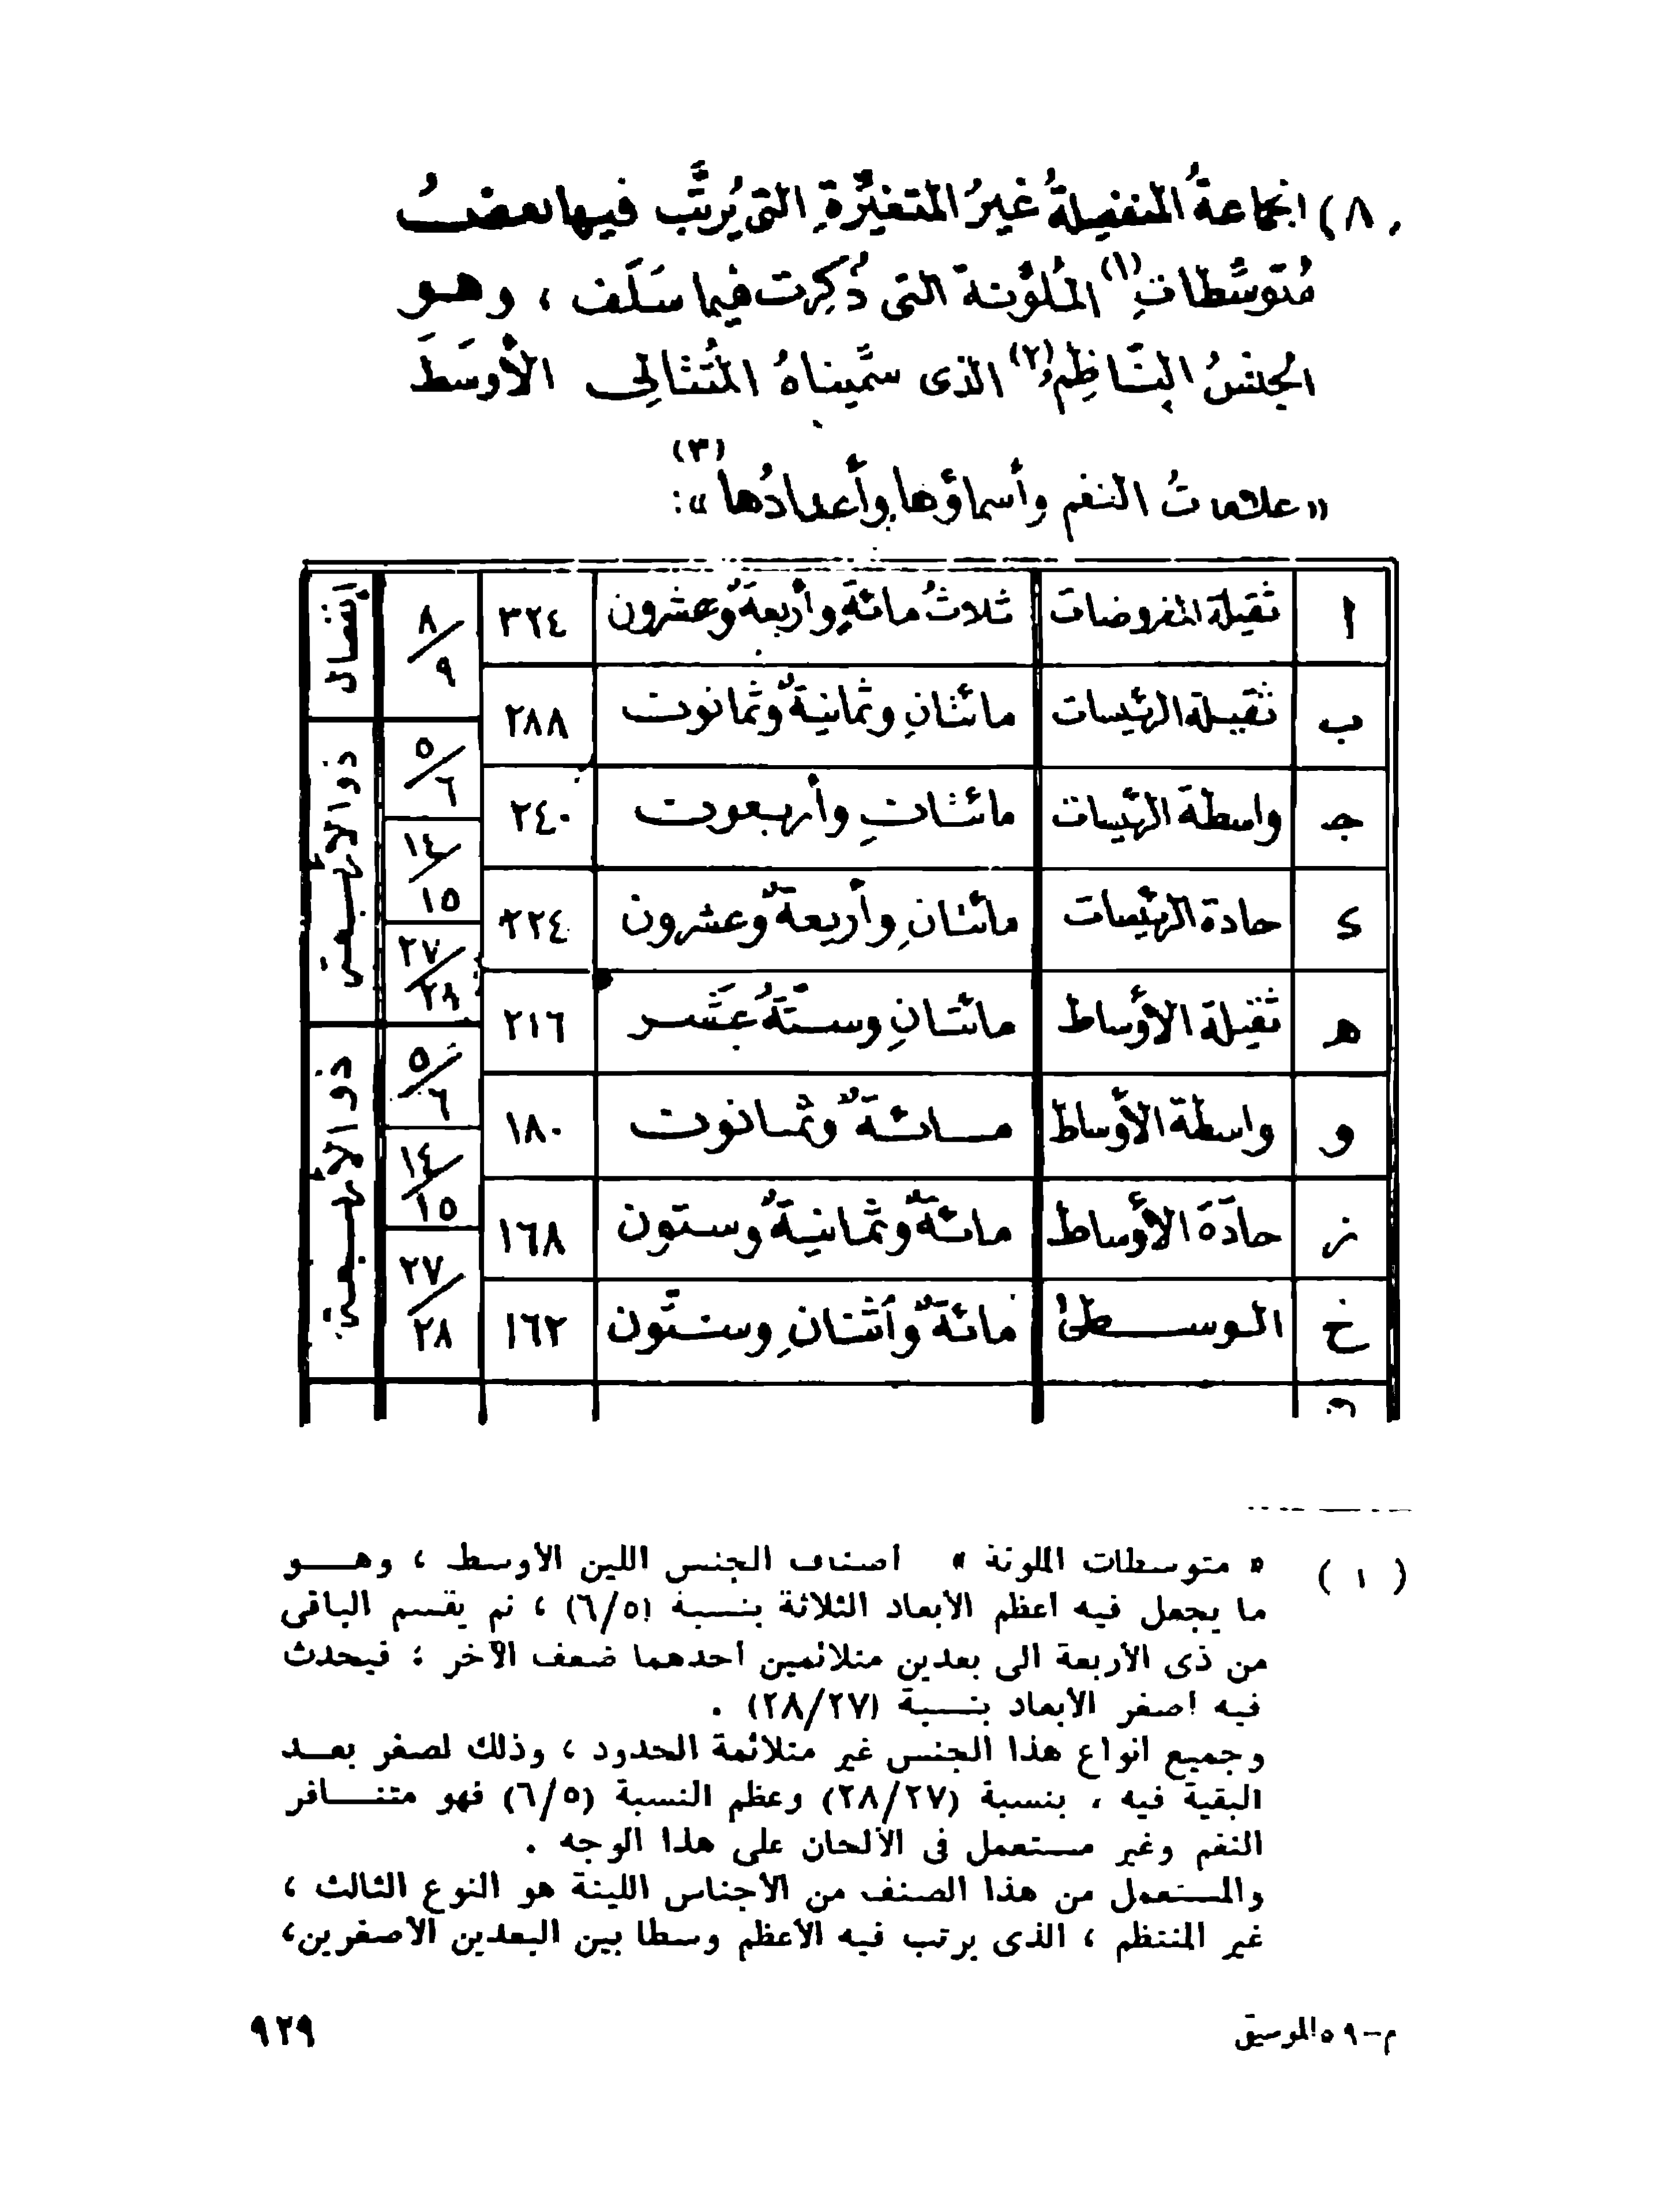 ٨) الجماعةُ المنفصلةُ غيرُ المتغيّرةِ التى يُرتَّب فيها بعضُ
مُتوسّطاتِ (١) المُلوّنة التى ذُكِرت فيما سَلَف ، وهو
الجنسُ النّاظِمُ (٢) الذى سمّيناهُ المُتتالِى الأوسَطَ
«علاماتُ النغم وأسماؤها وأعدادُها (٣)» :
ا ثقيلة المفروضات ثلاثُ مائةٍ وأربعةٌ وعشرون ٣٢٤ ٨/٩ إنفصال
ب ثقيلة الرئيسات مائتانِ وثمانيةٌ وثمانون ٢٨٨ ٥/٦ ذو الأربعة
جـ واسطة الرئيسات مائتانِ وأربعون ٢٤٠ ١٤/١٥
د حادة الرئيسات مائتانِ وأربعةٌ وعشرون ٢٢٤ ٢٧/٢٨
هـ ثقيلة الأوساط مائتانِ وستّةُ عَشَر ٢١٦ ٥/٦ ذو الأربعة
و واسطة الأوساط مائةٌ وثمانون ١٨٠ ١٤/١٥
ز حادّة الأوساط مائةٌ وثمانيةٌ وستون ١٦٨ ٢٧/٢٨
ح الوسطى مائةٌ وأثنانِ وستّون ١٦٢
(١) « متوسطات الملونة » أصناف الجنس اللين الأوسط ، وهو
ما يجعل فيه أعظم الأبعاد الثلاثة بنسبة (٦/٥) ، ثم يقسم الباقى
من ذى الأربعة الى بعدين متلائمين أحدهما ضعف الآخر ؛ فيحدث
فيه أصغر الأبعاد بنسبة (٢٨/٢٧) .
وجميع أنواع هذا الجنس غير متلائمة الحدود ، وذلك لصغر بعد
البقية فيه ، بنسبة (٢٨/٢٧) وعظم النسبة (٦/٥) فهو متنافر
النغم وغير مستعمل فى الألحان على هذا الوجه .
والمستعمل من هذا الصنف من الأجناس اللينة هو النوع الثالث ،
غير المنتظم ، الذى يرتب فيه الأعظم وسطا بين البعدين الأصغرين ،
م–٥٩ الموسيقى
٩٢٩